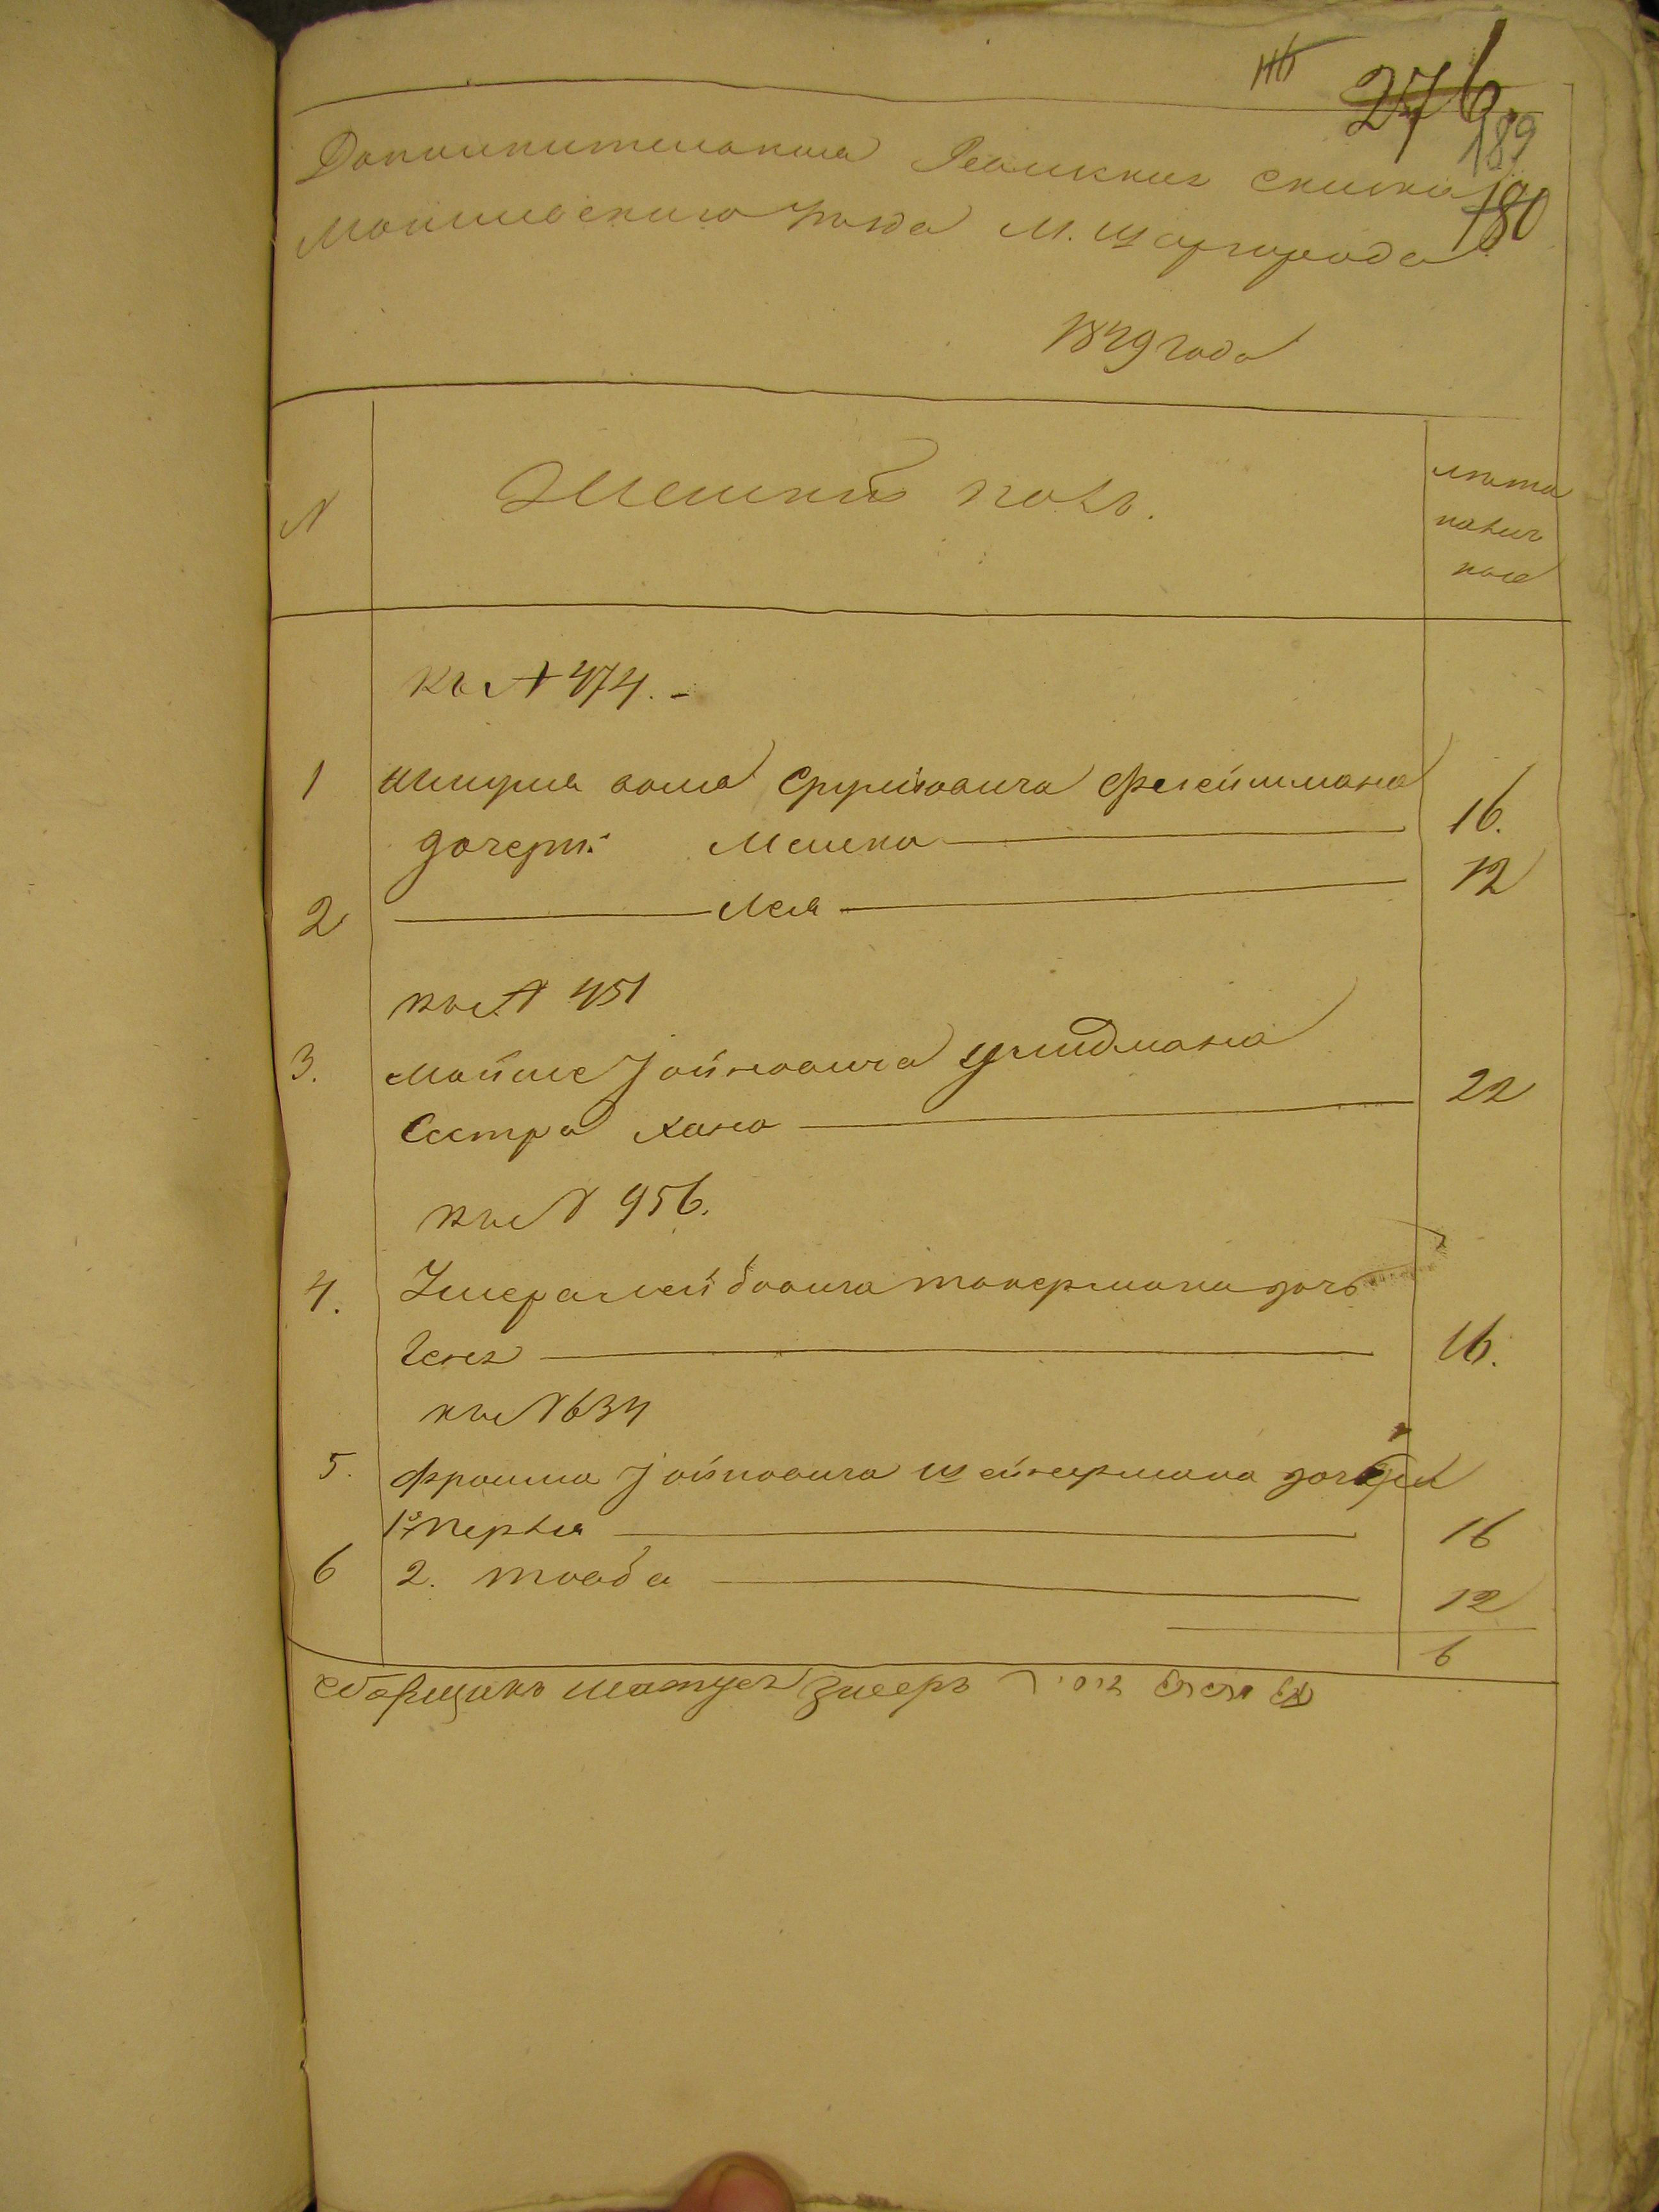 276
189
180
Дополнительная Ревизская сказка
Могилевского уезда М. Шаргорода
1849 года
N
Женский полъ.
лета
налич
ное
къ N 474. -
1
Сруловича Флейшмана
дочери: Менка
16.
2
Лея
12
къ N 451
3.
Мойше Иойновича Фридмана
Сестра Хана
22
къ N 956.
4.
Лейбовича Токермана дочь
Геня
16.
къ N 634
5.
Фроима Иойновича Шейнермана дочери
1я Перля
16
6
2. Товба
12
6
Сборщикъ Матусъ Зисеръ